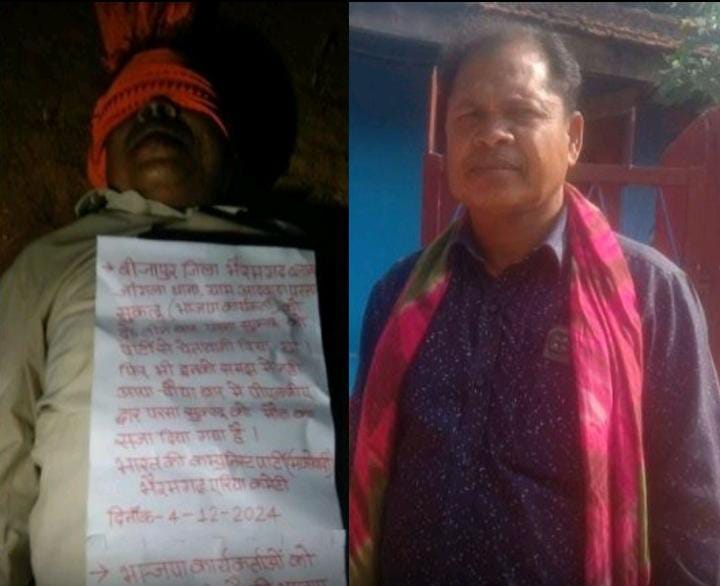 → बीजापुर जिला भैरमगढ़
थाना, ग्राम परसा
सुकलू (भाजपा कार्यकर्ता) को
तीन बार परसा सुकलू को
पार्टी से चेतावनी दिया,
फिर भी इनकी समझ में नहीं
आया चौथा बार में पीएलजीए
द्वारा परसा सुकलू को मौत का
सजा दिया गया है।
भारत की कम्युनिस्ट पार्टी (माओवादी)
भैरमगढ़ एरिया कमेटी
दिनाँक-4-12-2024
→ भाजपा कार्यकर्ताओं को